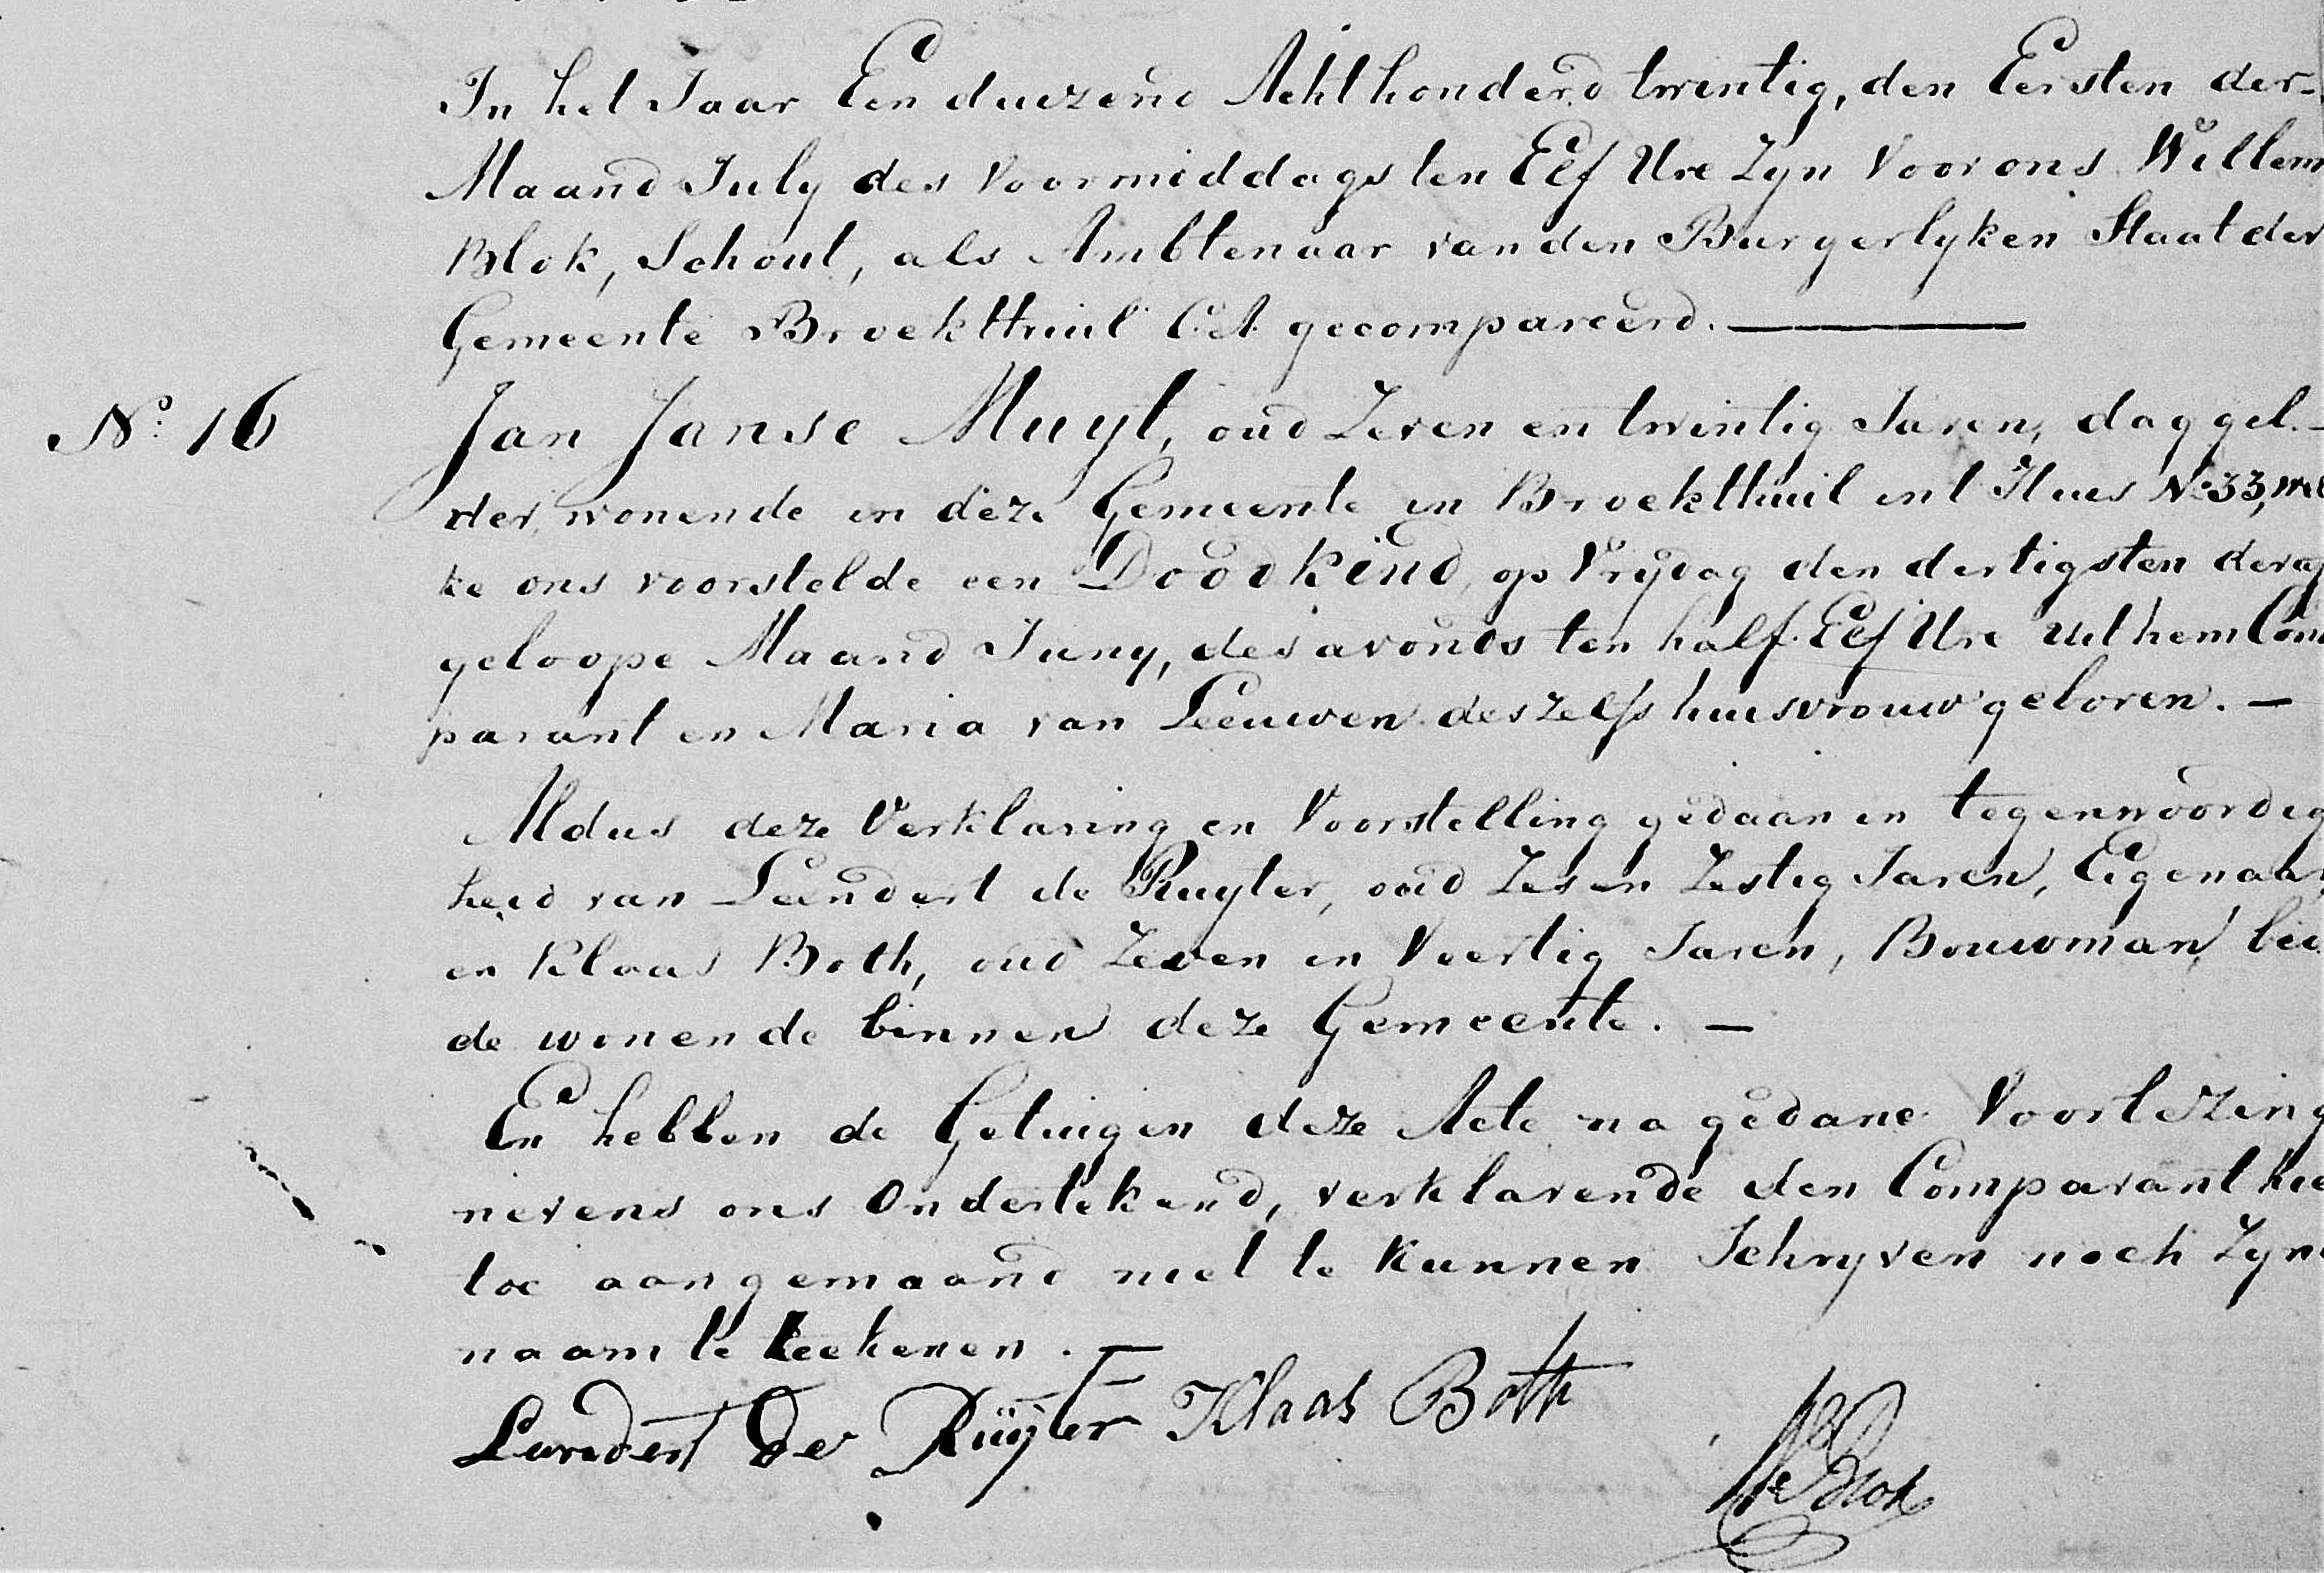 In het Jaar Een duizend Achthonderd twintig, den Eersten der
Maand July des Voormiddags ten Elf Ure Zyn Voor ons Willem
Blok, Schout, als Ambtenaar van den Burgerlyken Staat der
Gemeente Broekthuil C:A: gecompareerd.
No: 16
Jan Janse Muyt, oud Zeven en twintig Jaren, daggel-
der, wonende in deze Gemeente in Broekthuil int Huis No 33, wel
ke ons voorstelde een Doodkind, op Vrydag den dertigsten der af
geloope Maand Juny, des avonds ten half Elf Ure uit hem Com
parant en Maria van Leeuwen deszelfs huisvrouw geboren. —
Aldus deze Verklaring en Voorstelling gedaan in tegenwoordig
heid van Leendert de Ruyter, oud Zes en Zestig Jaren, Eigenaar
en Klaas Both, oud Zeven en Veertig Jaren, Bouwman, bei
de wonende binnen deze Gemeente. —
En hebben de Getuigen deze Acte na gedane Voorlezing
nevens ons Ondertekend, verklarende den Comparant hie
toe aangemaand niet te kunnen Schryven noch Zyn
naam te teekenen. —
Lendert De Rüyter Klaas Both
W Blok